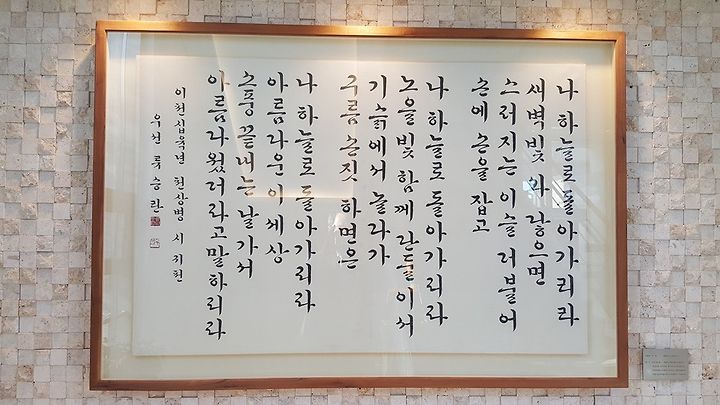 나 하늘로 돌아가리라
새벽빛 와 닿으면
스러지는 이슬 더불어
손에 손을 잡고
나 하늘로 돌아가리라
노을빛 함께 단둘이서
기슭에서 놀다가
구름 손짓하면은
나 하늘로 돌아가리라
아름다운 이 세상
소풍 끝내는 날 가서
아름다웠더라고 말하리라
이천십육년 천상병 시
승란